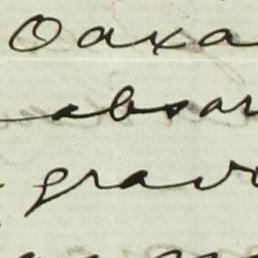 Oaxa
absor
grav